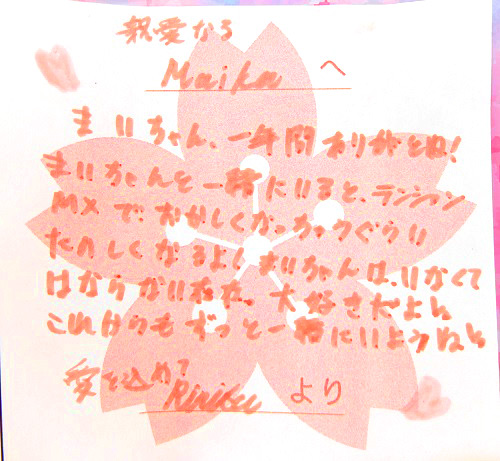 親愛なる
Maika へ
まいちゃん、一年間ありがとね!
まいちゃんと一緒にいると、テンション
MXで、おかしくなっちゃうぐらい
たのしくなるよ! まいちゃんは、いなくて
はならない存在。大好きだよ
これからもずっと一緒にいようね
愛を込めて
より